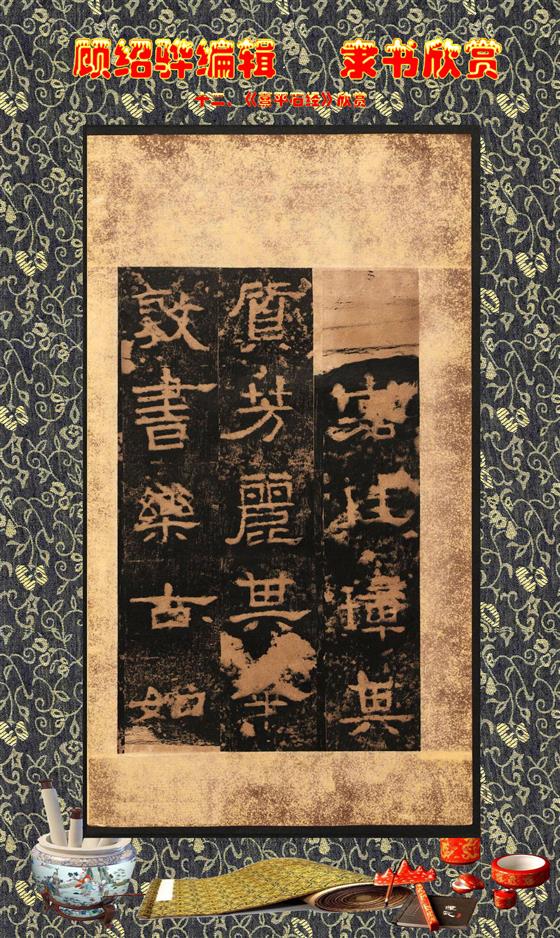 顾绍骅编辑 隶书欣赏
十二、《熹平石经》欣赏
其
質芳麗其
敦書樂古如